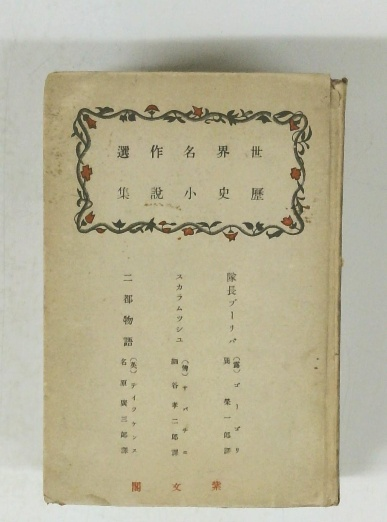 世界名作選
歴史小説集
隊長ブーリバ
(露)ゴーゴリ
原榮一郎譯
スカラムツシユ
(伊)サバチニ
細谷孝二郎譯
二都物語
(英)ディケンス
名原廣三郎譯
紫文閣